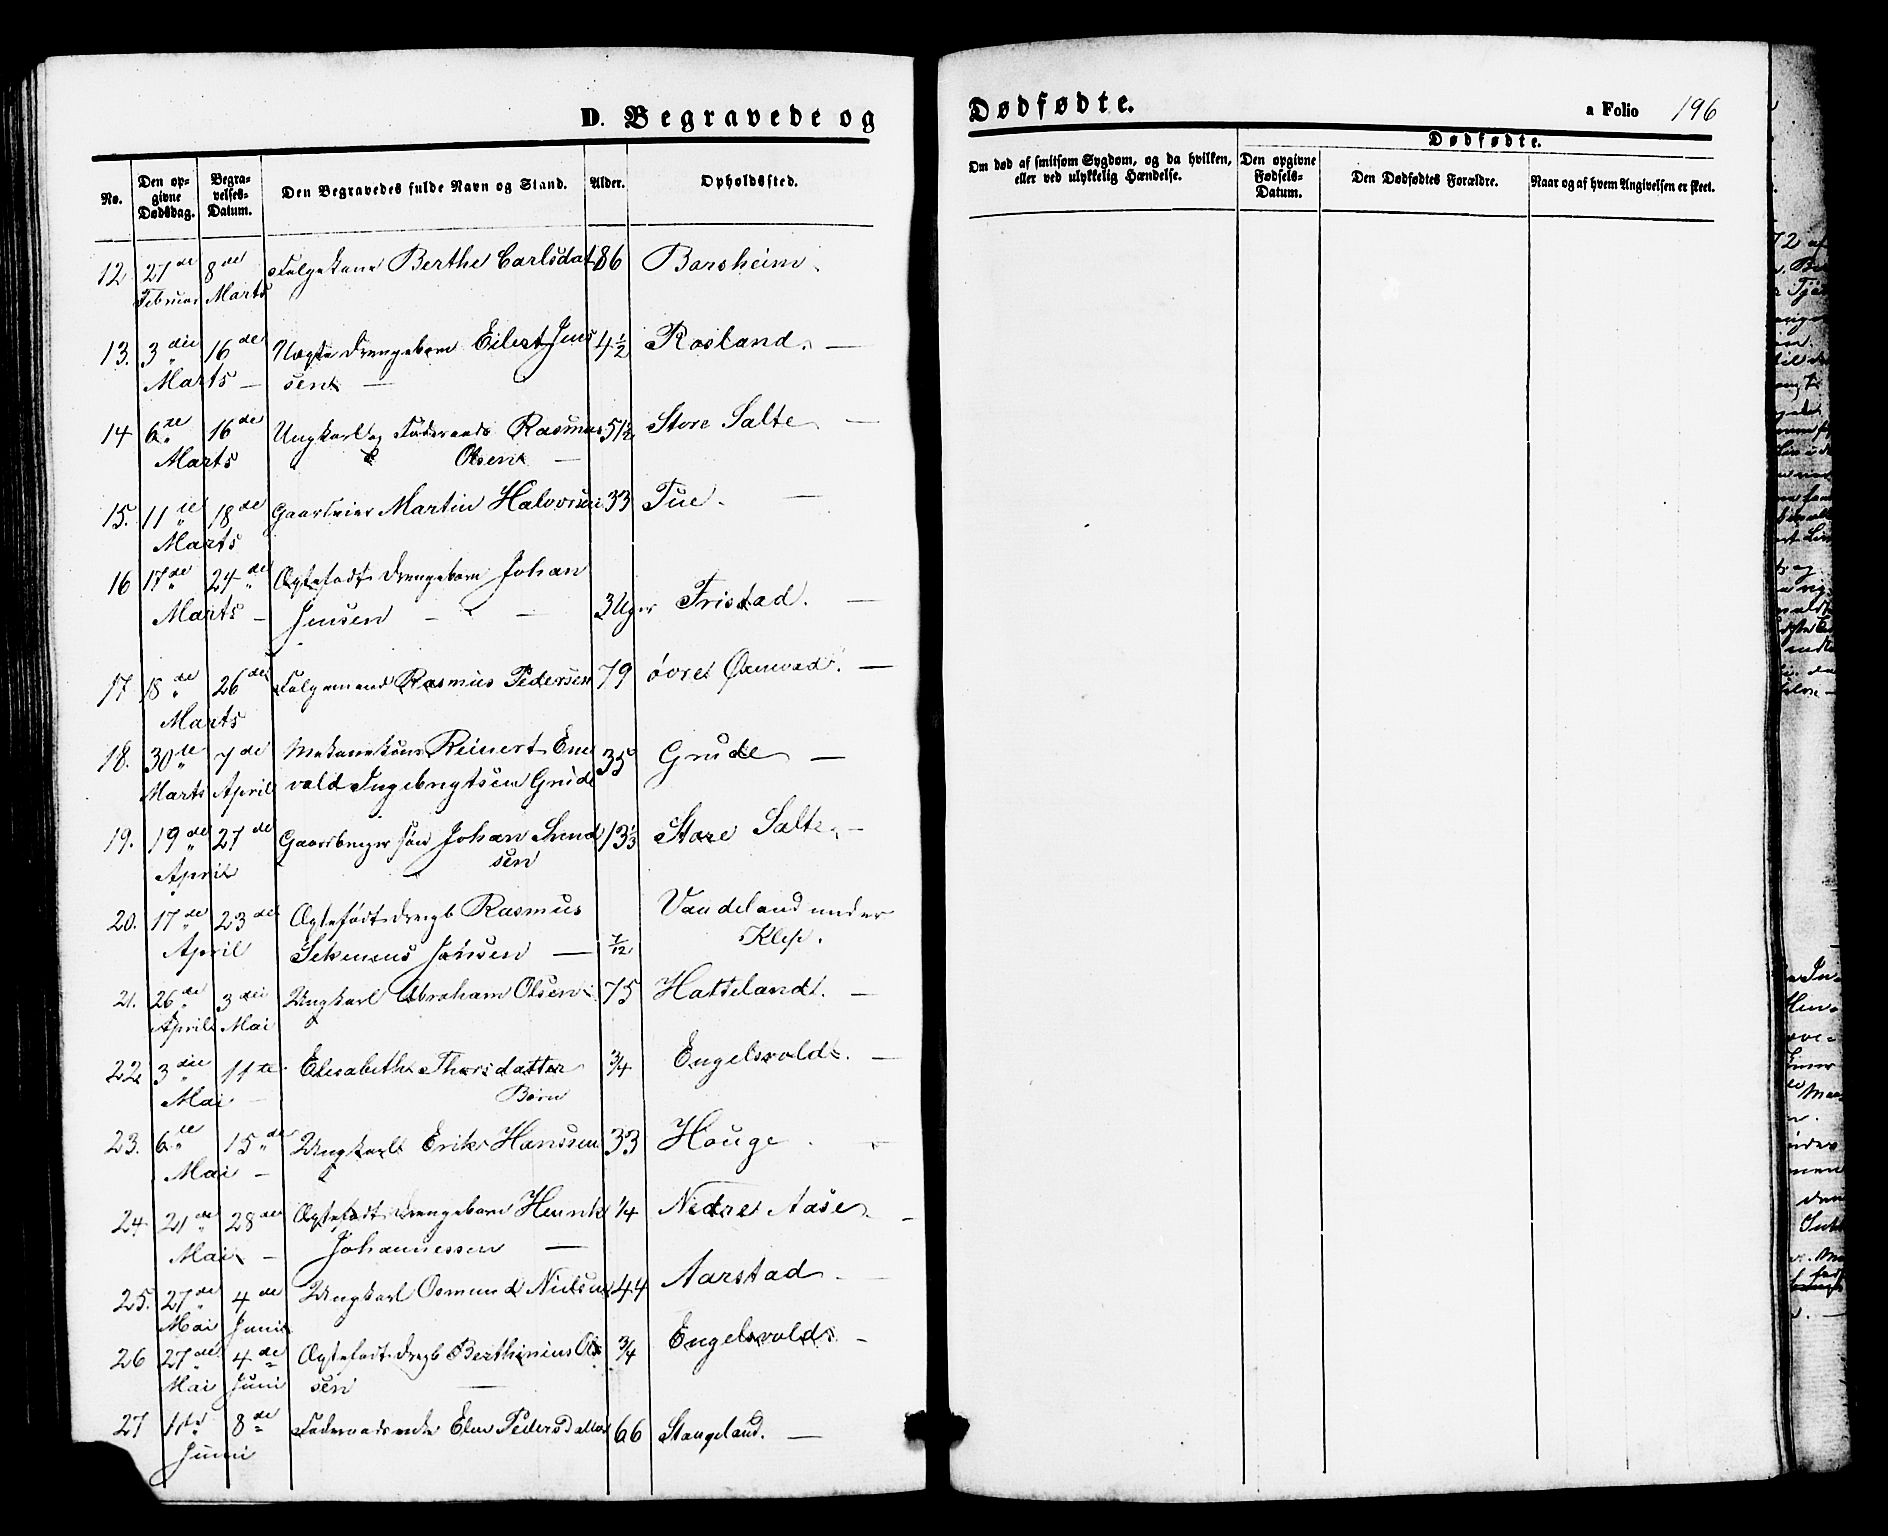 D. Begravede og
Dødfødte.
a Folio 196
No.
Den op-
givne
Dødsdag.
Begra-
velses-
Datum.
Den Begravedes fulde Navn og Stand.
Alder.
Opholdssted.
Om død af smitsom Sygdom, og da hvilken,
eller ved ulykkelig Hændelse.
Dødfødte.
Den opgivne
Fødsels-
Datum.
Den Dødfødtes Forældre.
Naar og af hvem Angivelsen er skeet.
12 27de 8de Folgekone Berthe Carlsdat 86 Borsheim.
Februar Marts
13. 3die 16de Uægte Drengebarn Eilert Jens 4½ Rosland. —
Marts — sen —
14 6te 16de Ungkarl og Rasmus 51½ Store Salte —
Marts Olsen —
15. 11te 18de Gaardeier Martin Halvorsen 33 Tue. —
Marts
16 17de 24de Ægtefødt Drengebarn Johan
Marts — Jensen — — 3 Uger Fristad. —
17 18de 26de Folgemand Rasmus Pedersen 79 øvre Øxnevad. —
Marts
18. 30te 7de Reinert Ene 35 Grude —
Marts April vold Ingebrigtsen Grude
19. 19de 27de Gaardbruger søn Johan Svend 13⅓ Store Salte. —
April sen
20. 17de 23de Ægtefødt Drengb Rasmus Vandeland under
April Jonsen — 7/12 Klep.
21. 26de 3die Ungkarl Abraham Olsen 75 Hatteland. —
April Mai
22 3die 11te Elisabeth Thorsdatter ¾ Engelsvold. —
Mai — Barn
23. 6te 15de Ungkarl Erik Hanssen 33 Houge . —
Mai —
24 21de 28de Ægtefødt Drengebarn Henrik ¼ Nedre Aase —
Mai — Johannessen —
25. 27de 4de Ungkarl Osmund Nielsen 44 Aarstad —
Mai Juni
26 27de 4de Ægtefødt Drgb Berthinius Ol ¾ Engelsvold —
Mai Juni sen —
27 1ste 8de Foderaadsenke Elen Pedersdatter 66 Stangeland. —
Juni